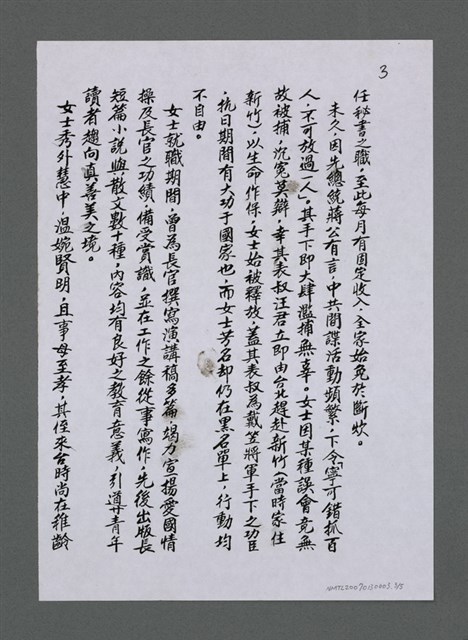 3
任秘書之職，至此每月有固定收入，全家始免於斷炊。
未久，因先總統蔣公有言，中共間諜活動頻繁，下令「寧可錯抓百
人，不可放過一人」。其手下即大肆濫捕無辜。女士因某種誤會竟無
故被捕，沉冤莫辯，幸其表叔汪君立即由台北趕赴新竹（當時家住
新竹），以生命作保，女士始被釋放，蓋其表叔為戴笠將軍手下之功臣
，抗日期間有大功于國家也，而女士芳名却仍在黑名單上，行動均
不自由。
女士就職期間，曾為長官撰寫演講稿多篇，竭力宣揚愛國情
操及長官之功績，備受賞識，並在工作之餘從事寫作，先後出版長
短篇小說與散文數十種，內容均有良好之教育意義，引導青年
讀者趨向真善美之境。
女士秀外慧中，溫婉賢明，且事母至孝，其侄來台時尚在稚齡
NMTL20070130005.3/5